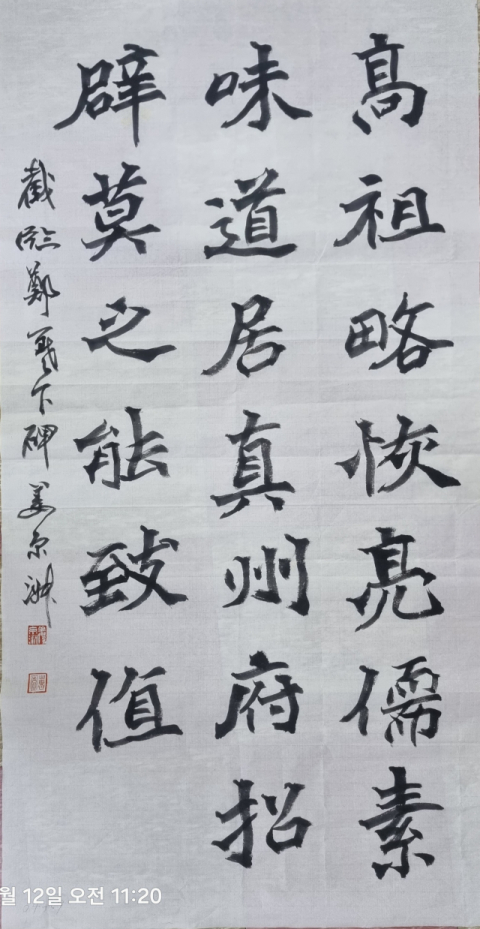 高祖略恢亮儒素
味道居真州府招
辟莫之能致值
截臨鄭羲下碑
月 12日 오전 11:20